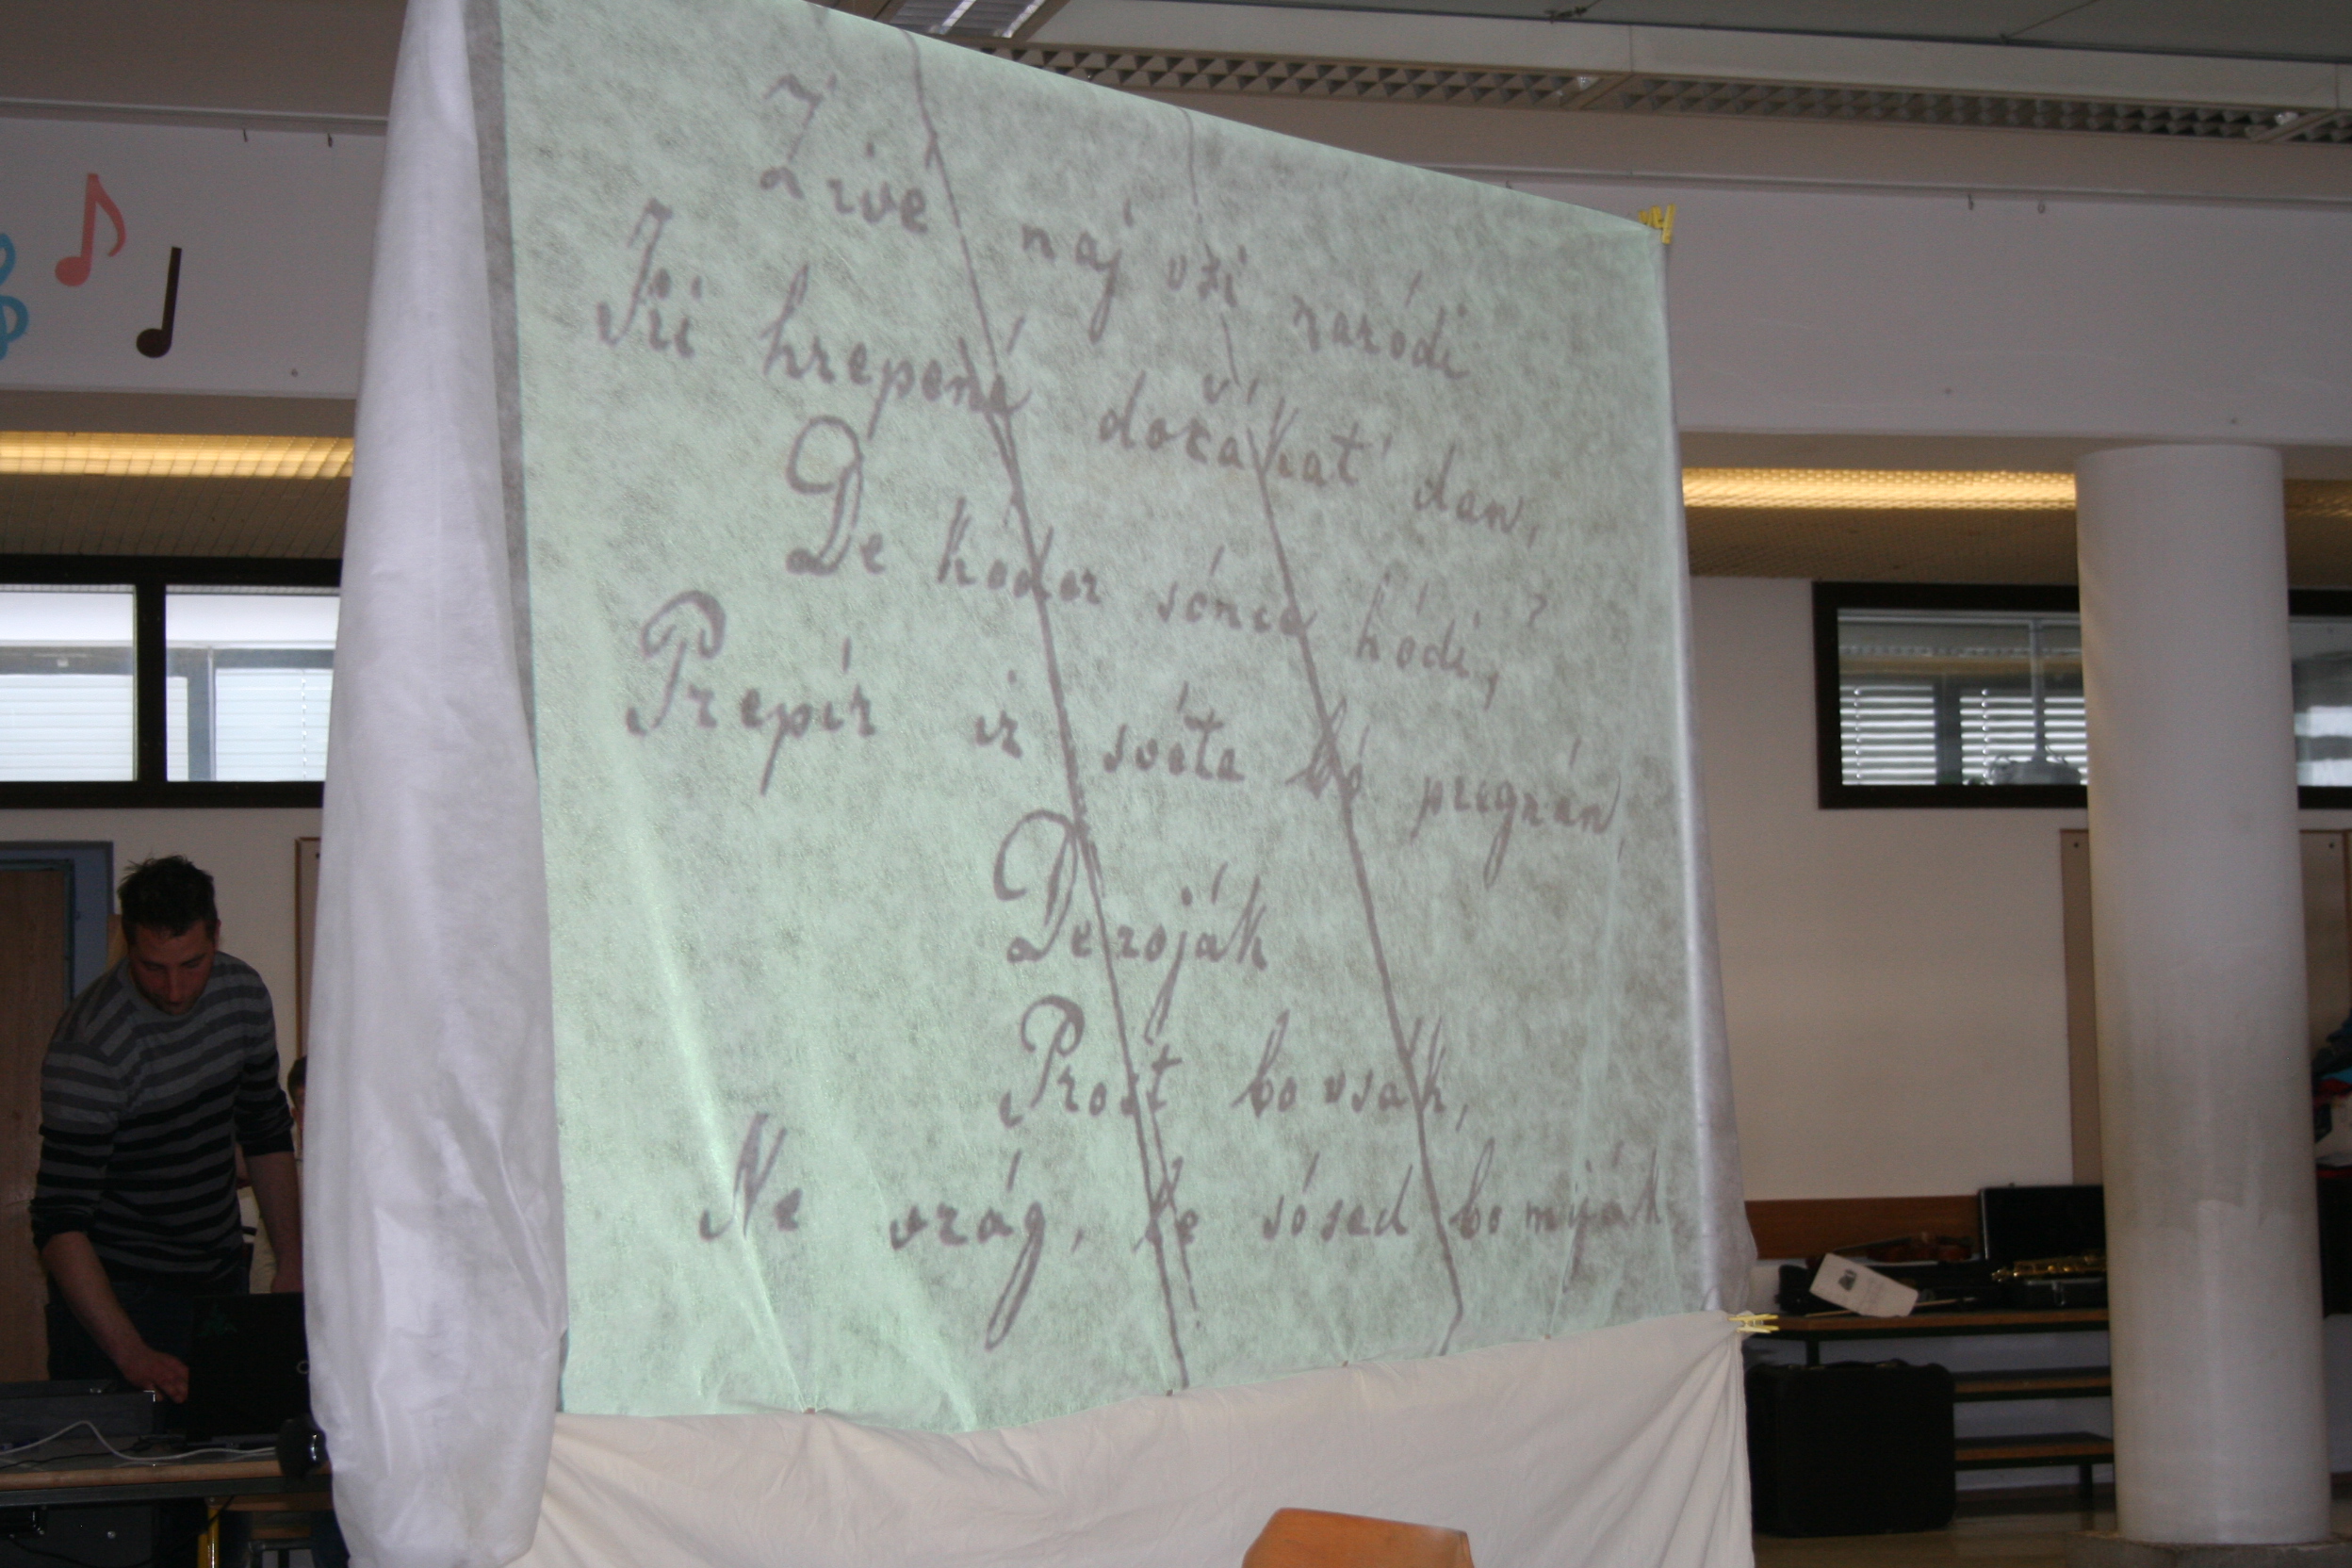 Živé náj vsi naródi
Ki hrepené dočákat dan,
De kóder sónce hódi,
Prepír iz svéta bó pregnán
De roják
Prost bo vsak,
Ne vrág, le sósed bo miják